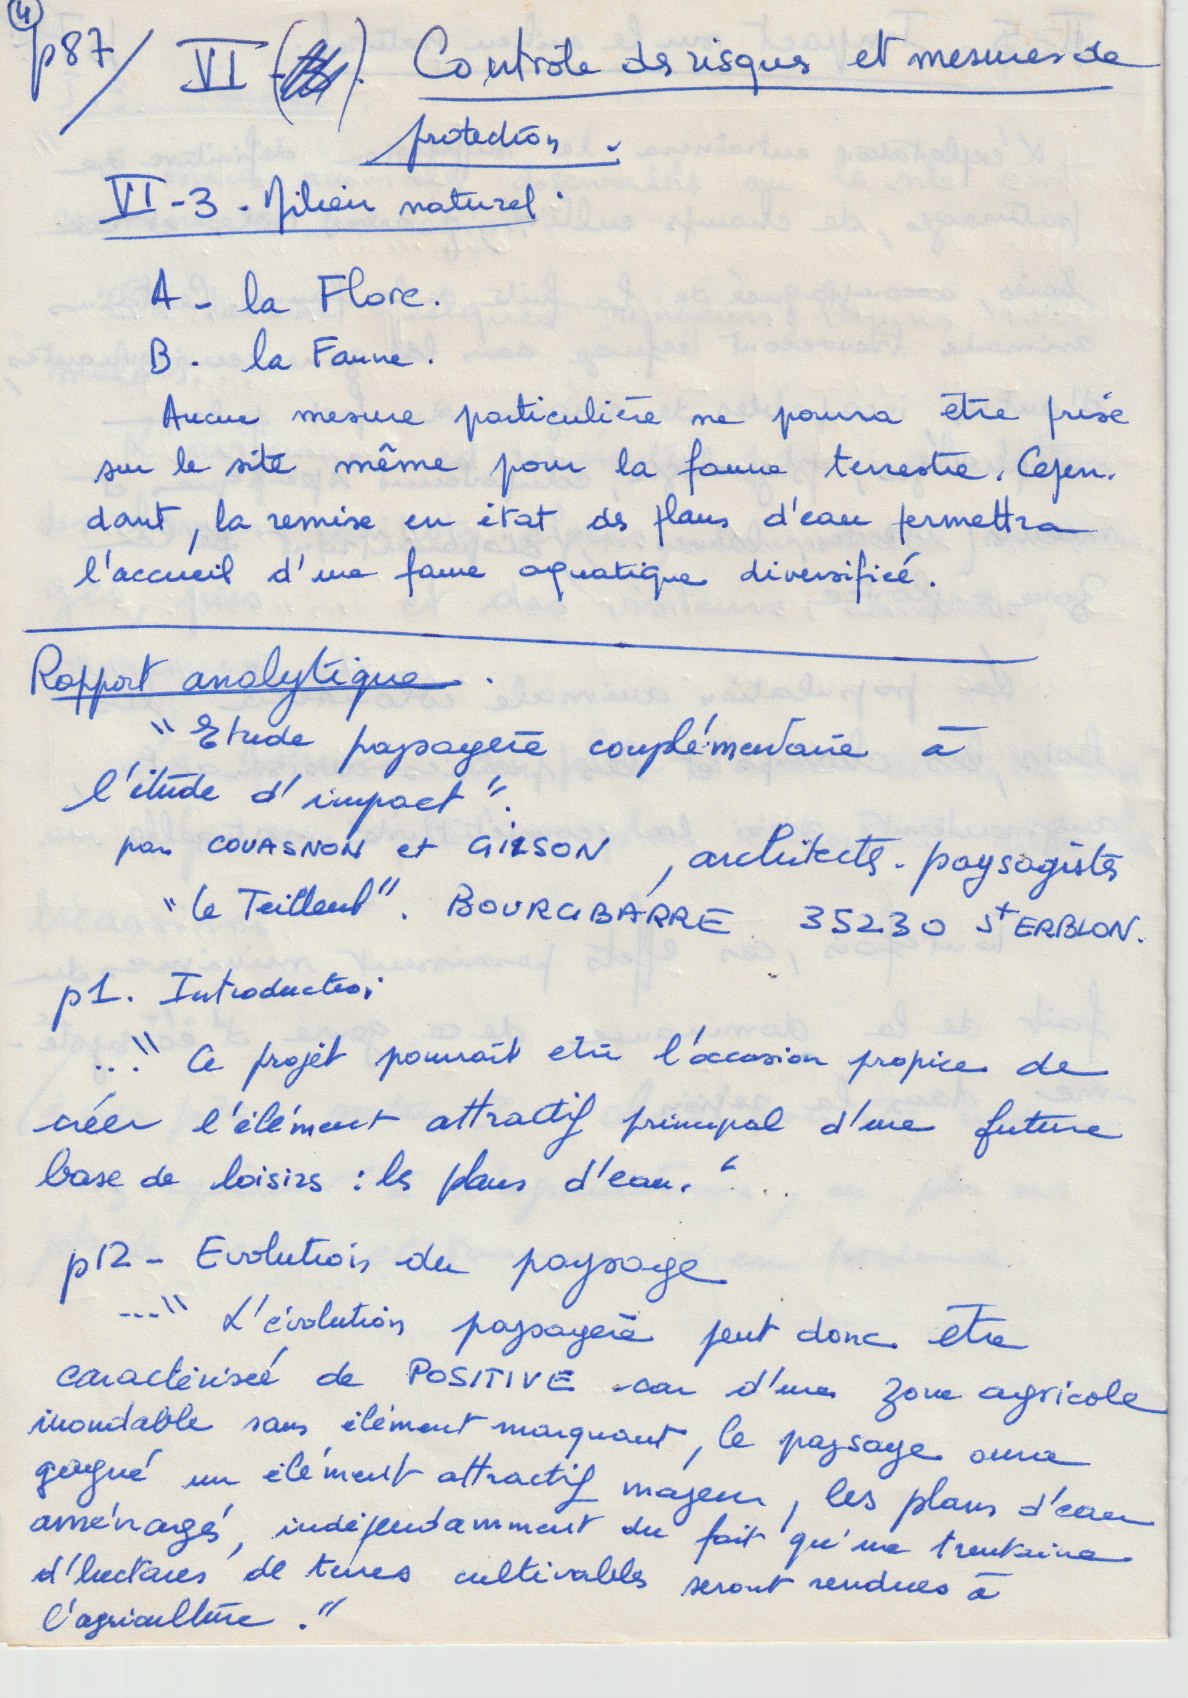 4
p87/ VI - . Contrôle des risques et mesures de
protection.
VI-3. Milieu naturel.
A - la Flore.
B. la Faune.
Aucune mesure particulière ne pourra être prise
sur le site même pour la faune terrestre. Cepen-
dant, la remise en état des plans d'eau permettra
l'accueil d'une faune aquatique diversifiée.
Rapport analytique.
"Etude paysagère complémentaire à
l'étude d'impact".
par COUASNON et GILSON, architectes-paysagistes
"Le Teilleul". BOURGBARRE 35230 St ERBLON.
p1. Introduction
..." Ce projet pourrait être l'occasion propice de
créer l'élément attractif principal d'une future
base de loisirs : les plans d'eau."...
p12 - Evolution du paysage
..." L'évolution paysagère peut donc être
caractérisée de POSITIVE car d'une zone agricole
inondable sans élément marquant, le paysage aura
gagné un élément attractif majeur, les plans d'eau
aménagés, indépendamment du fait qu'une trentaine
d'hectares de terres cultivables seront rendues à
l'agriculture."